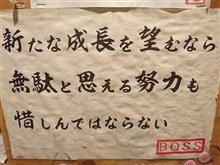 新たな成長を望むなら
無駄と思える努力も
惜しんではならない
BOSS